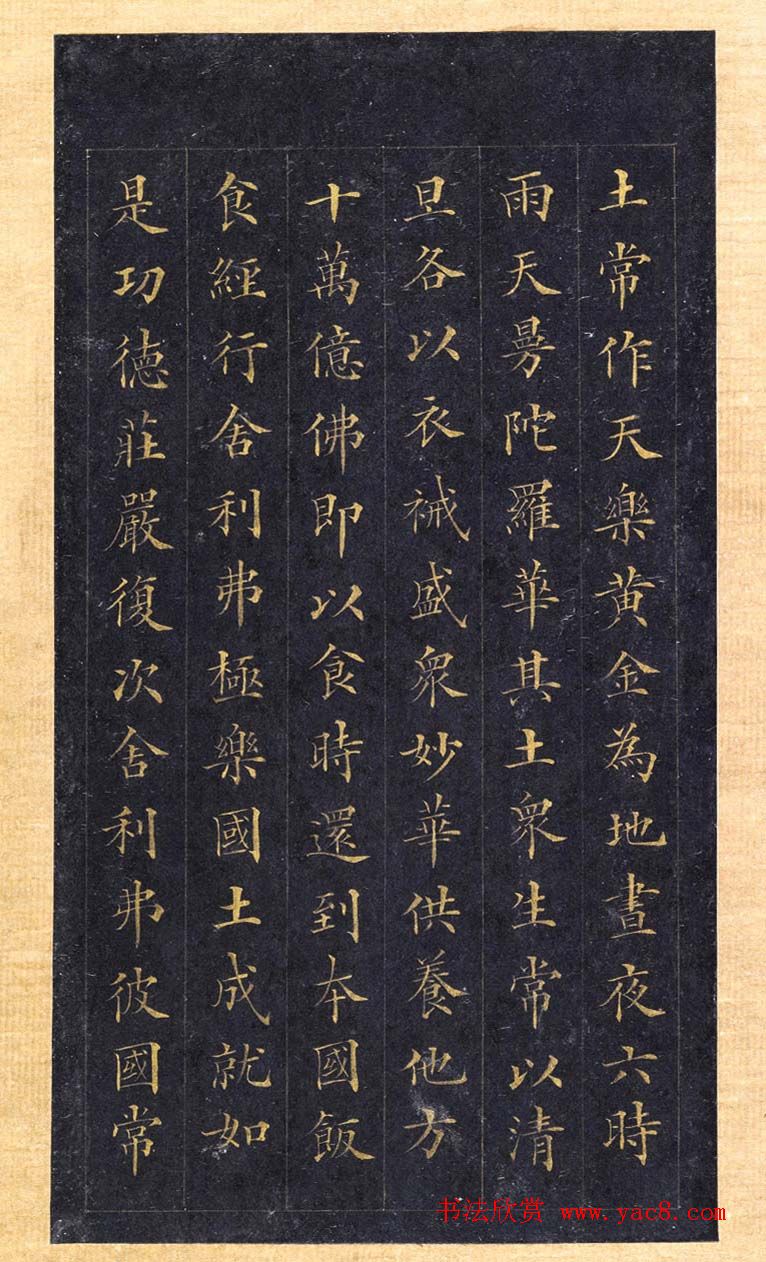 土常作天樂黄金為地晝夜六時
雨天曼陀羅華其土衆生常以清
旦各以衣裓盛衆妙華供養他方
十萬億佛即以食時還到本國飯
食經行舍利弗極樂國土成就如
是功德莊嚴復次舍利弗彼國常
书法欣赏 www.yac8.com